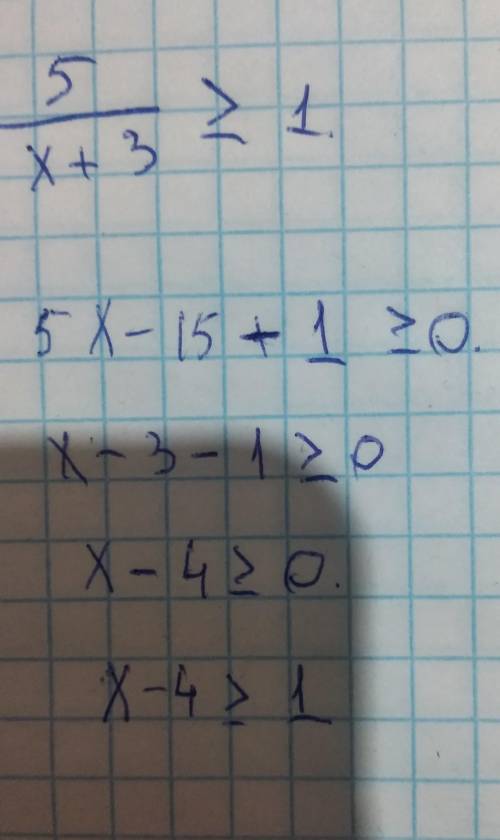 5
x + 3 ≥ 1.
5x - 15 + 1 ≥ 0.
x - 3 - 1 ≥ 0
x - 4 ≥ 0.
x - 4 ≥ 1